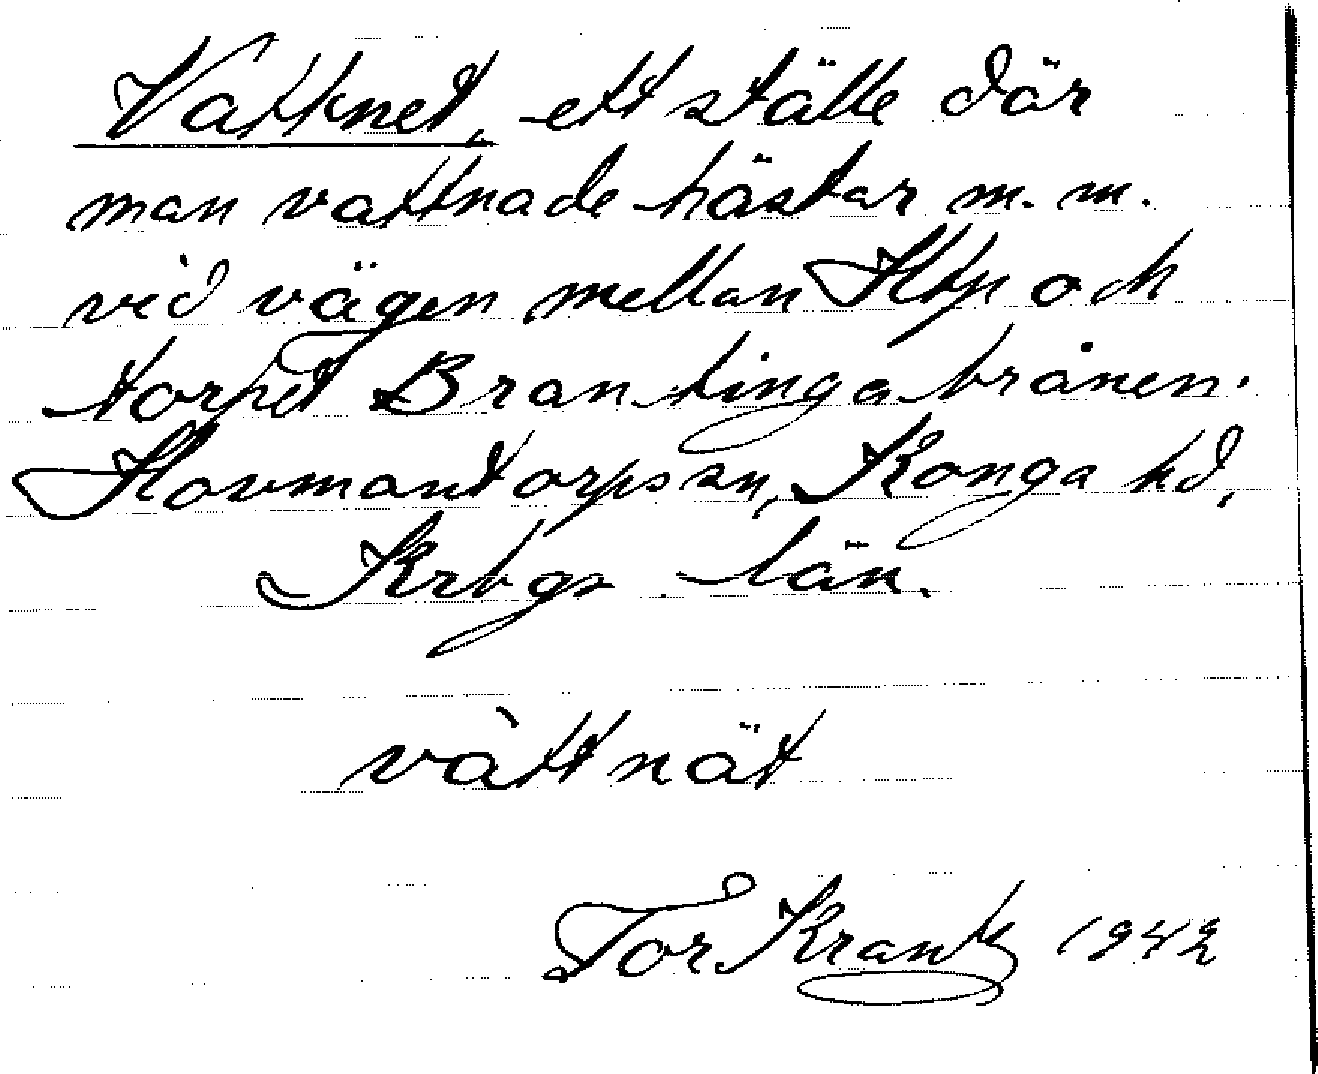 Vattnet, ett ställe där
man vattnade hästar m. m.
vid vägen mellan Htp och
torpet Brantingabrånen.
Hovmantorps sn, Konga hd,
Krbgs län.
vàttnät
Tor Krantz 1942